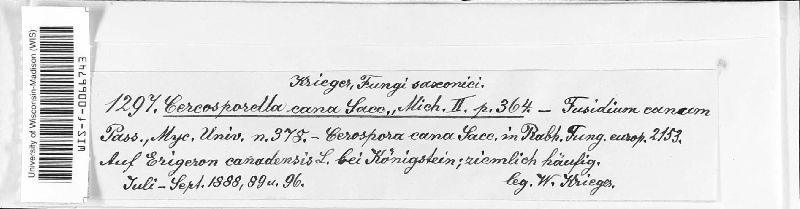 Krieger, Fungi saxonici.
1297. Cercosporella cana Sacc., Mich. II. p. 364 – Fusidium canum
Pass., Myc. Univ. n. 375. – Cerospora cana Sacc. in Rabh. Fung. europ. 2153.
Auf Erigeron canadensis L. bei Königstein; ziemlich häufig.
Juli – Sept. 1888, 89 u. 96. leg. W. Krieger.
University of Wisconsin-Madison (WIS)
WIS-f-0066743